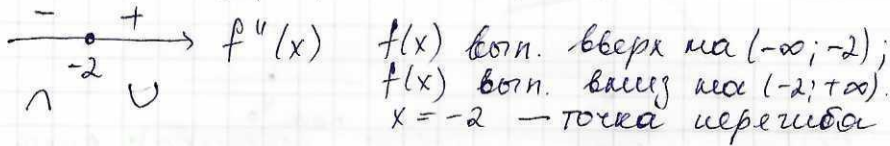 - +
-2
∩ ∪
f''(x)
f(x) вып. вверх на (-∞; -2);
f(x) вып. вниз на (-2; +∞).
x = -2 — точка перегиба